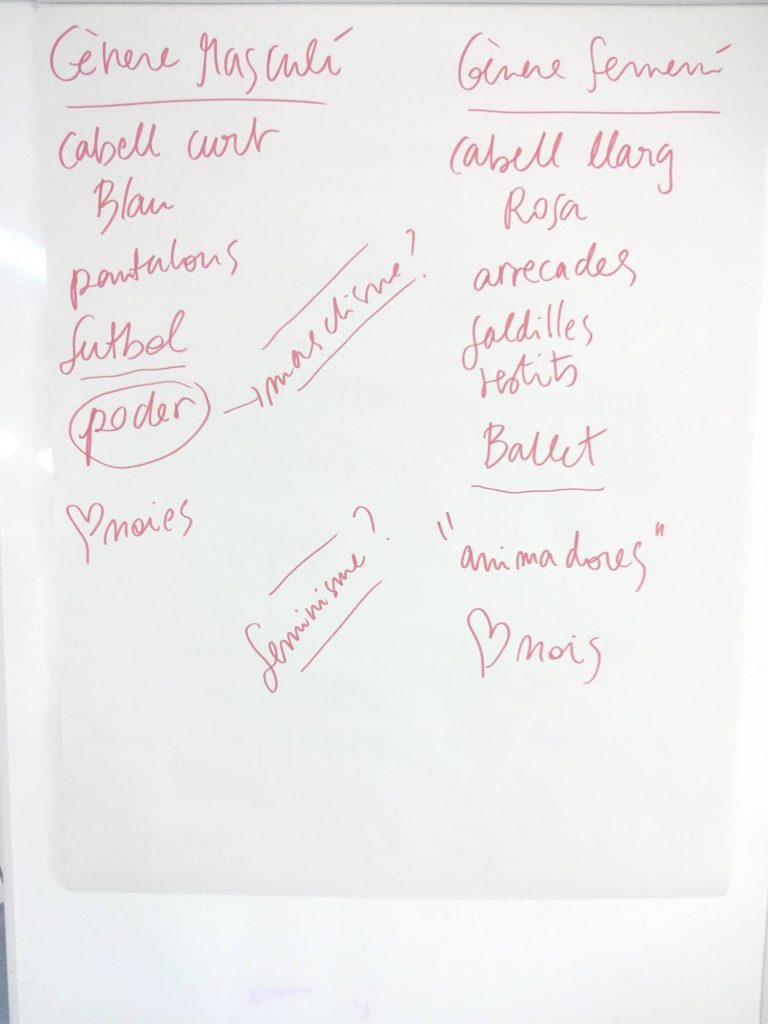 Gènere Masculí
cabell curt
Blau
pantalons
futbol
poder
→ masclisme?
♡ noies
feminisme?
Gènere femení
cabell llarg
Rosa
arrecades
faldilles
vestits
Ballet
"animadores"
♡ nois